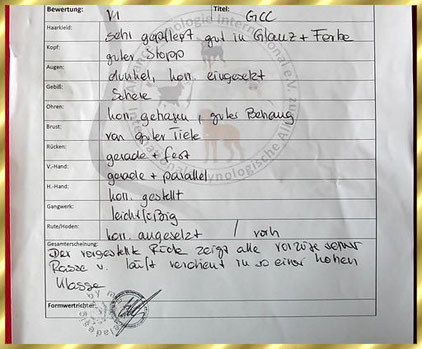 Bewertung: V1 Titel: GCC
Haarkleid: sehr gepflegt gut in Glanz + Farbe
Kopf: guter Stopp
Augen: dunkel, korr. eingesetzt
Gebiß: Schere
Ohren: korr. getragen, guter Behang
Brust: von guter Tiefe
Rücken: gerade + fest
V.-Hand: gerade + parallel
H.-Hand: korr. gestellt
Gangwerk: leichtfüßig
Rute/Hoden: korr. angesetzt / vorh
Gesamterscheinung:
Der vorgestellte Rüde zeigt alle Vorzüge seiner
Rasse u. läuft verdient in so einer hohen
Klasse
Formwertrichter: